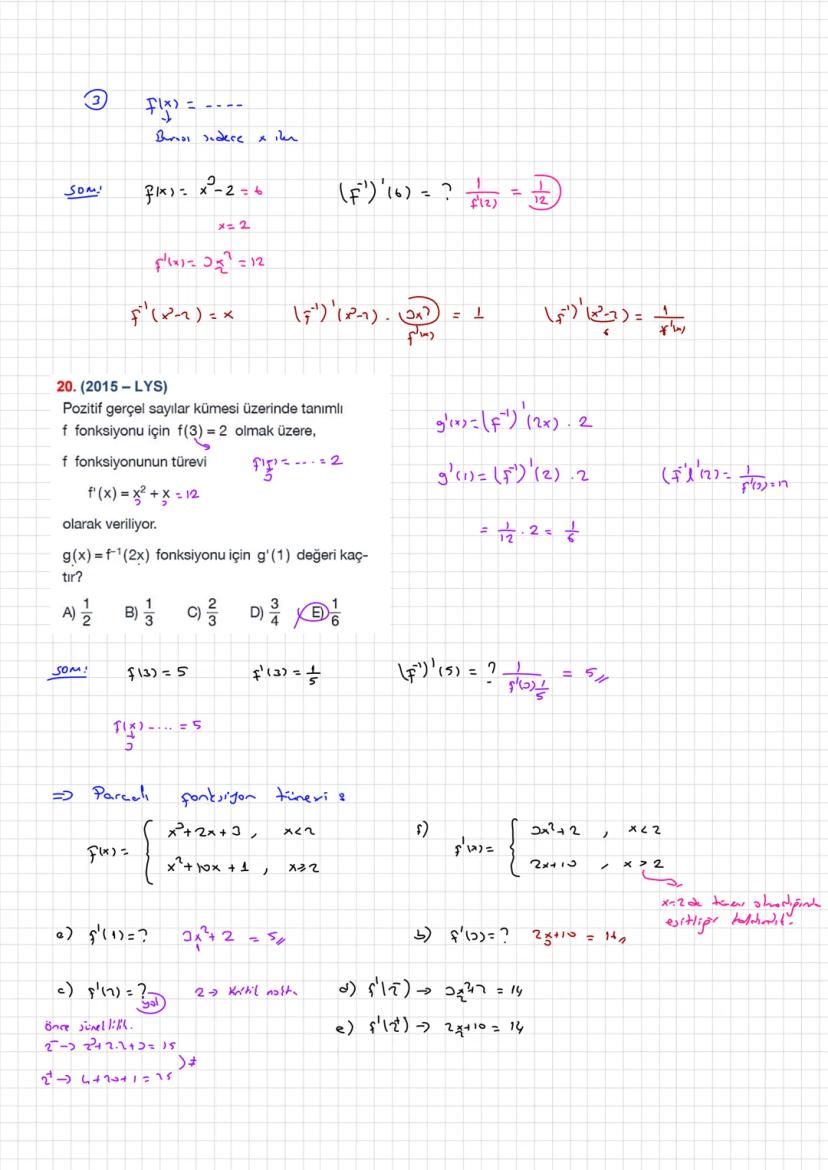 ③ f(x) = ----
Burası sadece x iken
SORU: f(x) = x³-2 = 6 (f⁻¹)'(6) = ? 1/f'(2) = 1/12
x = 2
f'(x) = 3x² = 12
2
f⁻¹(x³-2) = x (f⁻¹)'(x³-2) . 3x² = 1 (f⁻¹)'(x³-2) = 1/f'(x)
f'(x) 6
20. (2015 – LYS)
Pozitif gerçel sayılar kümesi üzerinde tanımlı
f fonksiyonu için f(3) = 2 olmak üzere,
f fonksiyonunun türevi f(x) = ---- = 2
3
f'(x) = x² + x = 12
3 3
olarak veriliyor.
g(x) = f⁻¹(2x) fonksiyonu için g'(1) değeri kaç-
tır?
A) 1/2 B) 1/3 C) 2/3 D) 3/4 E) 1/6
g'(x) = (f⁻¹)'(2x) . 2
g'(1) = (f⁻¹)'(2) . 2 (f⁻¹)'(2) = 1/f'(3) = 12
= 1/12 . 2 = 1/6
SORU: f(3) = 5 f'(3) = 1/5 (f⁻¹)'(5) = ? 1/f'(3) 1/5 = 5//
f(x) ---- = 5
3
⇒ Parçalı fonksiyon türevi :
f(x) = { x³+2x+3 , x<2
x²+10x+1 , x≥2
f) f'(x) = { 3x²+2 , x<2
2x+10 , x>2
x=2 de türev olmadığından
eşitliği kaldırdık.
a) f'(1) = ? 3x²+2 = 5// b) f'(3) = ? 2x+10 = 16//
1 3
c) f'(2) = ? yok 2 → kritik nokta d) f'(2⁻) → 3x²+2 = 14
2
önce süreklilik. e) f'(2⁺) → 2x+10 = 14
2
2⁻ → 2³+2.2+3 = 15
≠
2⁺ → 4+20+1 = 25